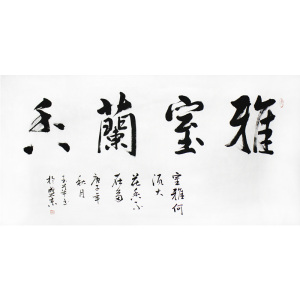 雅室蘭香
室雅何
須大
花香不
在多
庚子年
秋月